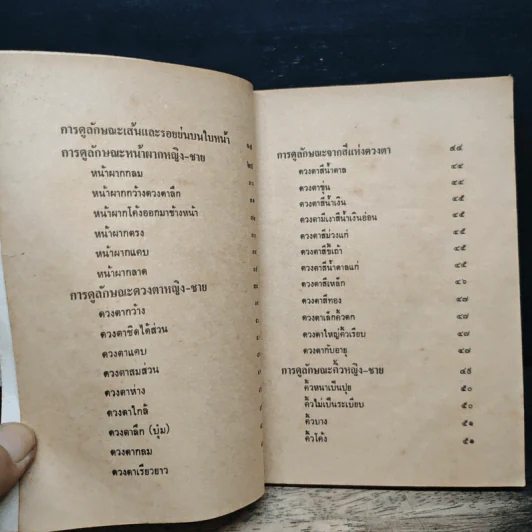 การดูลักษณะเส้นและรอยย่นบนใบหน้า
การดูลักษณะหน้าผากหญิง-ชาย
หน้าผากกลม
หน้าผากกว้างดวงตาลึก
หน้าผากโค้งออกมาข้างหน้า
หน้าผากตรง
หน้าผากแคบ
หน้าผากลาด
การดูลักษณะดวงตาหญิง-ชาย
ดวงตากว้าง
ดวงตาชิดได้ส่วน
ดวงตาแคบ
ดวงตาสมส่วน
ดวงตาห่าง
ดวงตาใกล้
ดวงตาลึก (บุ๋ม)
ดวงตากลม
ดวงตาเรียวยาว
การดูลักษณะจากสีแห่งดวงตา ๔๔
ดวงตาสีน้ำตาล ๔๕
ดวงตาขุ่น
ดวงตาสีน้ำเงิน ๔๕
ดวงตามีเงาสีน้ำเงินอ่อน ๔๕
ดวงตาสีม่วงแก่ ๔๕
ดวงตาสีขี้เถ้า ๔๕
ดวงตาสีน้ำตาลแก่ ๔๕
ดวงตาสีเหล็ก ๔๖
ดวงตาสีทอง ๔๗
ดวงตาเล็กคิ้วดก ๔๗
ดวงตาใหญ่คิ้วเรียบ ๔๗
ดวงตากับอายุ ๔๗
การดูลักษณะคิ้วหญิง-ชาย ๔๙
คิ้วหนาเป็นปุย ๕๐
คิ้วไม่เป็นระเบียบ ๕๐
คิ้วบาง ๕๑
คิ้วโค้ง ๕๑